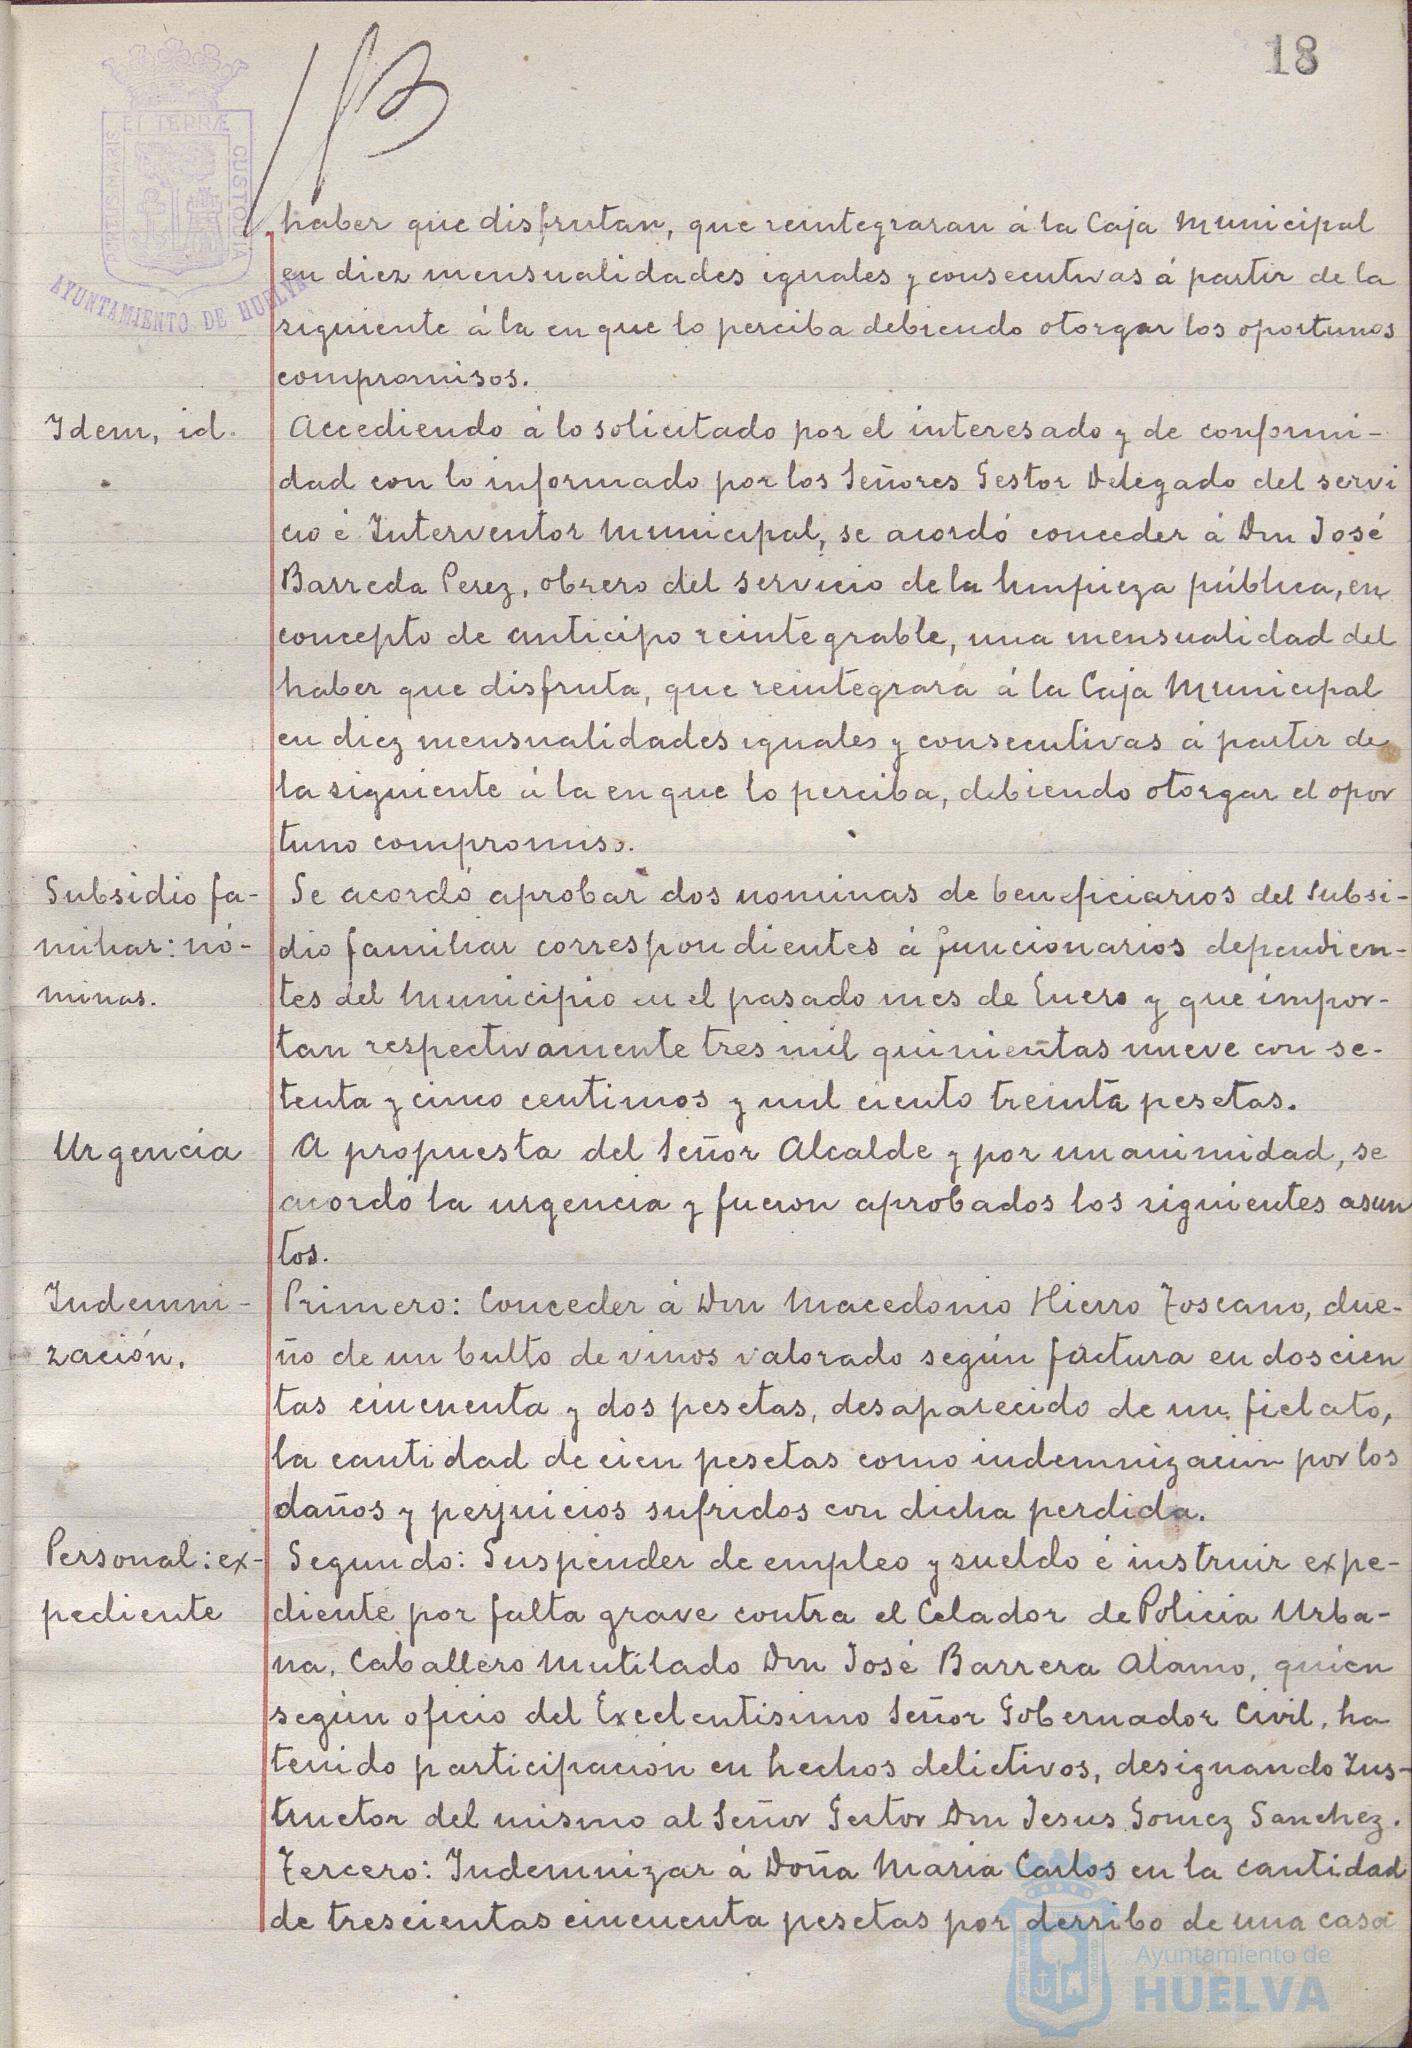 18
ET TERRÆ
PORTUS MARIS
CUSTODIA
AYUNTAMIENTO DE HUELVA
haber que disfrutan, que reintegraran á la Caja Municipal
en diez mensualidades iguales y consecutivas á partir de la
siguiente á la en que lo perciba debiendo otorgar los oportunos
compromisos.
Idem, id.
Accediendo á lo solicitado por el interesado y de conformi-
dad con lo informado por los Señores Gestor Delegado del servi
cio é Interventor Municipal, se acordó conceder á Don José
Barreda Perez, obrero del servicio de la limpieza pública, en
concepto de anticipo reintegrable, una mensualidad del
haber que disfruta, que reintegrará á la Caja Municipal
en diez mensualidades iguales y consecutivas á partir de
la siguiente á la en que lo perciba, debiendo otorgar el opor
tuno compromiso.
Subsidio fa-
miliar: nó-
minas.
Se acordó aprobar dos nominas de beneficiarios del Subsi-
dio familiar correspondientes á funcionarios dependien-
tes del Municipio en el pasado mes de Enero y que impor-
tan respectivamente tres mil quinientas nueve con se-
tenta y cinco centimos y mil ciento treinta pesetas.
Urgencia
A propuesta del Señor Alcalde y por unanimidad, se
acordó la urgencia y fueron aprobados los siguientes asun
tos.
Indemni-
zación.
Primero: Conceder á Don Macedonio Hierro Toscano, due-
ño de un bulto de vinos valorado según factura en doscien
tas cincuenta y dos pesetas, desaparecido de un fielato,
la cantidad de cien pesetas como indemnizacion por los
daños y perjuicios sufridos con dicha perdida.
Personal: ex-
pediente
Segundo: Suspender de empleo y sueldo é instruir expe-
diente por falta grave contra el Celador de Policia Urba-
na, Caballero Mutilado Don José Barrera Alamo, quién
según oficio del Excelentisimo Señor Gobernador Civil, ha
tenido participación en hechos delictivos, designando Ins-
tructor del mismo al Señor Gestor Don Jesus Gomez Sanchez.
Tercero: Indemnizar á Doña Maria Carlos en la cantidad
de trescientas cincuenta pesetas por derribo de una casa
Ayuntamiento de
HUELVA